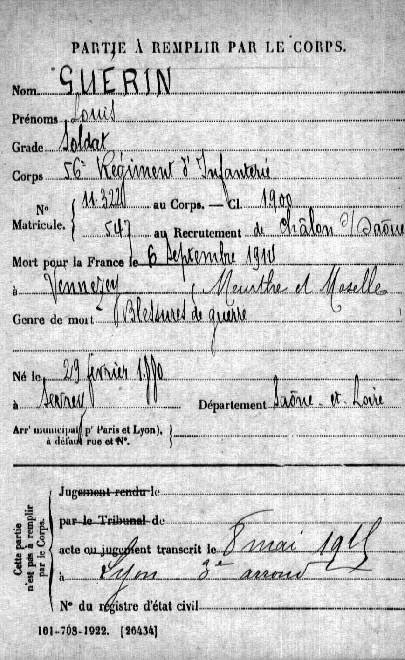 PARTIE À REMPLIR PAR LE CORPS.
Nom GUÉRIN
Prénoms Louis
Grade Soldat
Corps 56e Régiment d'Infanterie
N° Matricule. { 11.322 au Corps. — Cl. 1900
547 au Recrutement de Châlon s/Saône
Mort pour la France le 6 Septembre 1914
à Vennezey (Meurthe et Moselle
Genre de mort Blessures de guerre
Né le 29 février 1880
à Sevrey Département Saône-et-Loire
Arrt municipal (pr Paris et Lyon), à défaut rue et N°.
Cette partie n'est pas à remplir par le Corps.
Jugement rendu le
par le Tribunal de
acte ou jugement transcrit le 8 mai 1915
à Lyon 3e arrond
N° du registre d'état civil
161-708-1922. [26434]